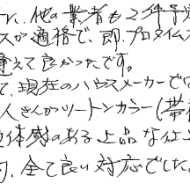 、他の業者も2件予
スが適格で、即、プロタイムズ
違えて良かったです。
て、現在のハウスメーカーで
人さんかツートンカラー(帯
立体感のある上品な仕上
内、全て良い対応でした